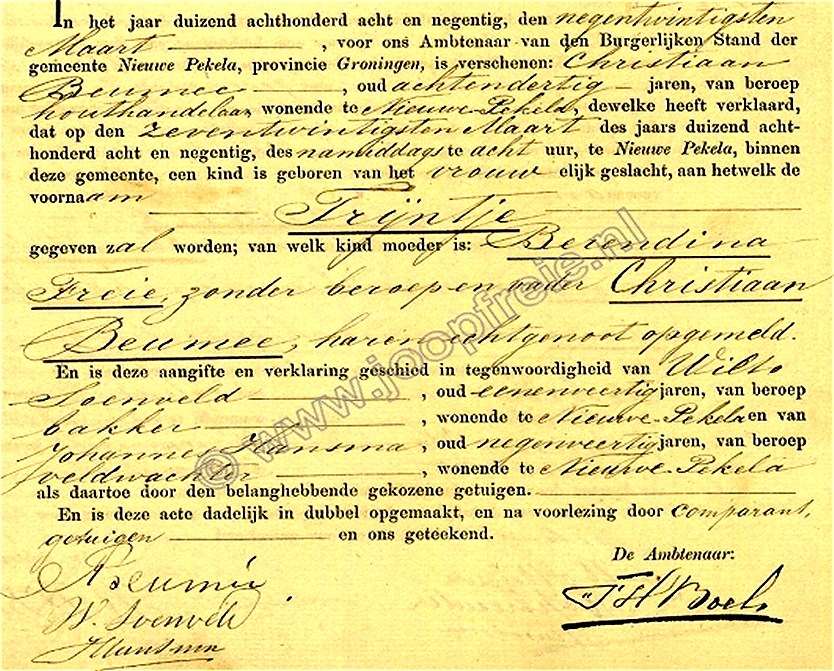 In het jaar duizend achthonderd acht en negentig, den negentwintigsten
Maart, voor ons Ambtenaar van den Burgerlijken Stand der
gemeente Nieuwe Pekela, provincie Groningen, is verschenen: Christiaan
Beumee, oud achtendertig jaren, van beroep
houthandelaar wonende te Nieuwe-Pekela, dewelke heeft verklaard,
dat op den zeventwintigsten Maart des jaars duizend acht-
honderd acht en negentig, des namiddags te acht uur, te Nieuwe Pekela, binnen
deze gemeente, een kind is geboren van het vrouwelijk geslacht, aan hetwelk de
voornaam
Trijntje
gegeven zal worden; van welk kind moeder is: Berendina
Freie, zonder beroep en vader Christiaan
Beumee, haren echtgenoot opgemeld.
En is deze aangifte en verklaring geschied in tegenwoordigheid van Wilto
Toenveld, oud eenenveertig jaren, van beroep
bakker, wonende te Nieuwe-Pekela en van
Johannes Hansma, oud negenveertig jaren, van beroep
veldwachter, wonende te Nieuwe-Pekela
als daartoe door den belanghebbende gekozene getuigen.
En is deze acte dadelijk in dubbel opgemaakt, en na voorlezing door comparant,
getuigen en ons geteekend.
De Ambtenaar:
© www.joopfreie.nl